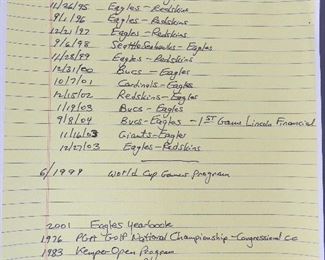 11/26/95 Eagles-Redskins
9/1/96 Eagles-Redskins
12/21/97 Eagles-Redskins
9/6/98 Seattle Seahawks-Eagles
11/28/99 Eagles-Redskins
12/31/00 Bucs-Eagles
10/7/01 Cardinals-Eagles
12/15/02 Redskins-Eagles
1/19/03 Bucs-Eagles
9/8/04 Bucs-Eagles-1ST Game Lincoln Financial
11/16/03 Giants-Eagles
12/27/03 Eagles-Redskins
6/1999 World Cup Games Program
2001 Eagles Yearbook
1976 PGA Golf National Championship-Congressional CC
1983 Kemper Open Program